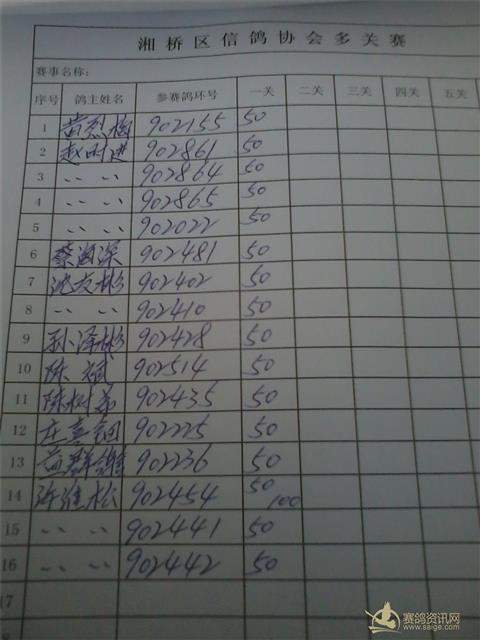 湘桥区信鸽协会多关赛
赛事名称：
序号 鸽主姓名 参赛鸽环号 一关 二关 三关 四关 五关
1 黄烈 902155 50
2 赵时进 902861 50
3 〃 〃 902864 50
4 〃 〃 902865 50
5 〃 〃 902022 50
6 蔡 深 902481 50
7 沈友彬 902402 50
8 〃 〃 902410 50
9 孙泽彬 902428 50
10 陈斌 902514 50
11 陈树 902435 50
12 庄喜 902225 50
13 群 902236 50
14 许维松 902454 50 100
15 〃 〃 902441 50
16 〃 〃 902442 50
17
赛鸽资讯网
www.saige.com